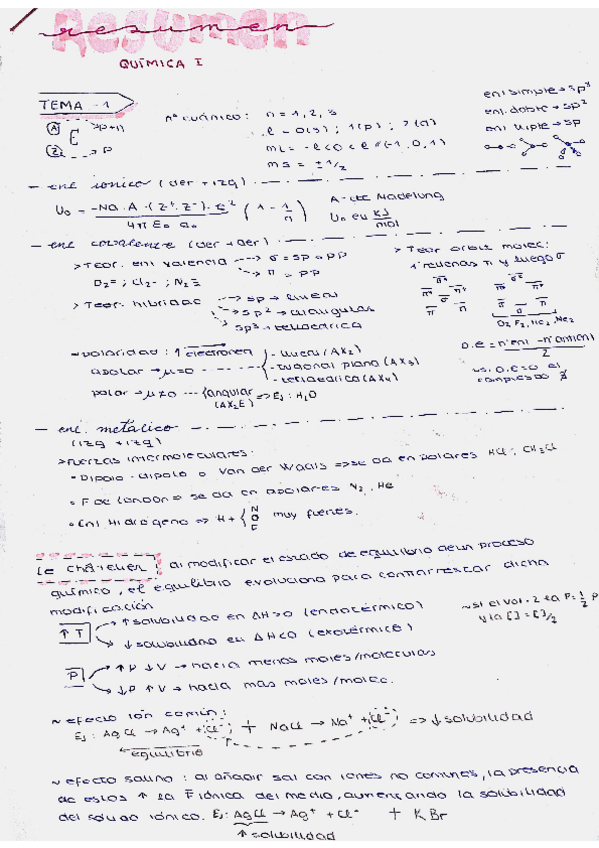 Resumen
QUÍMICA I
TEMA -1
nº cuánico: n = 1, 2, 3
l = 0(s); 1(p); 2(d)
ml = -l<0<l (-1,0,1)
ms = ± 1/2
enl simple → sp³
enl. doble → sp²
enl triple → sp
A → p+n
E
Z → p
- enl iónico (der + izq)
U₀ = -Na · A · (z⁺ · z⁻) · e² / 4π ε₀ a₀ (1 - 1/n)
A → cte Madelung
U₀ en KJ/mol
- enl covalente (der + der)
> Teor. enl valencia → σ = sp + pp
→ π = pp
O₂ =; Cl₂ -; N₂ ≡
> Teor. hibridac → sp → lineal
→ sp² → triangular
→ sp³ → tetraédrica
> Teor orbit molec:
O₂ F₂, Ne₂
O.E = nºenl - nº antienl / 2
~ polaridad: ↑ electroneg
apolar → μ=0 - lineal (AX₂)
- trigonal plana (AX₃)
- tetraédrica (AX₄)
polar → μ≠0 angular (AX₂E) => Ej: H₂O
- enl. metálico
(izq + izq)
> fuerzas intermoleculares:
• Dipolo - dipolo o Van der Waals => se da en polares HCl; CH₃Cl
• F de London => se da en apolares N₂, He
• Enl Hidrógeno => H + { N O F muy fuertes.
Le Châtelier: al modificar el estado de equilibrio de un proceso
químico, el equilibrio evoluciona para contrarrestar dicha
modificación
↑ T → ↑ solubilidad en ΔH>0 (endotérmico)
→ ↓ solubilidad en ΔH<0 (exotérmico)
~ si el vol · 2 la P = 1/2 P
y la [ ] = [ ]/2
P → ↑P ↓V → hacia menos moles/moléculas
→ ↓P ↑V → hacia más moles/moléc.
~ efecto ión común:
Ej: AgCl → Ag⁺ + Cl⁻ + NaCl → Na⁺ + Cl⁻ => ↓ solubilidad
equilibrio
~ efecto salino: al añadir sal con iones no comunes, la presencia
de estos ↑ la F iónica del medio, aumentando la solubilidad
del soluto iónico. Ej: AgCl → Ag⁺ + Cl⁻ + KBr
↑ solubilidad